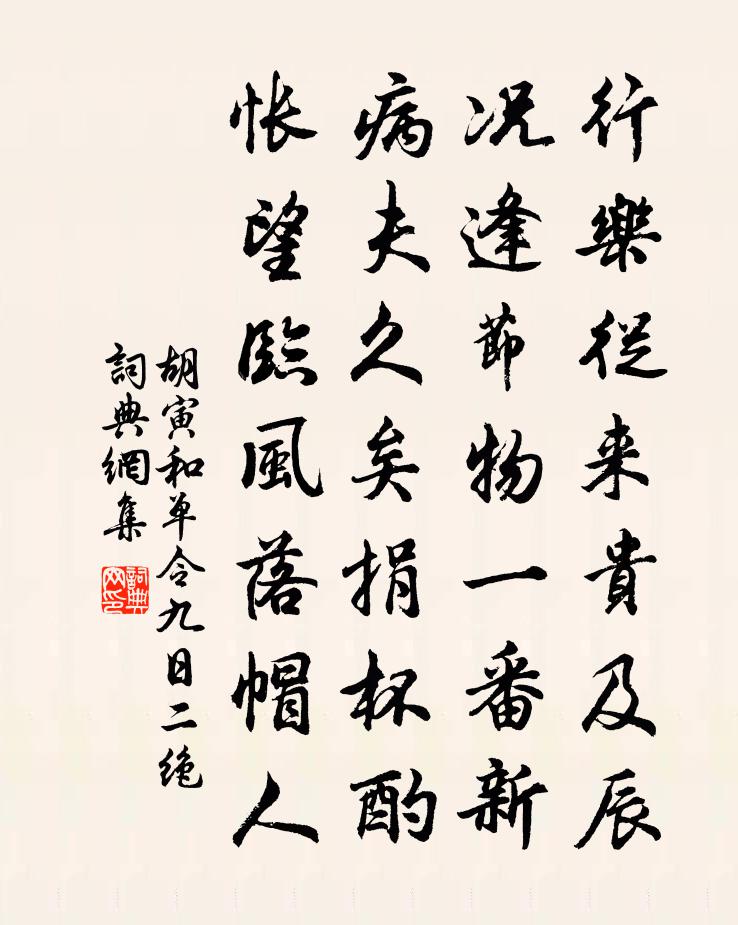 行樂從来貴及辰
况逢節物一番新
病夫久矣捐杯酌
悵望臨風落帽人
胡寅和单令九日二绝
詞典網集
詞典
网印